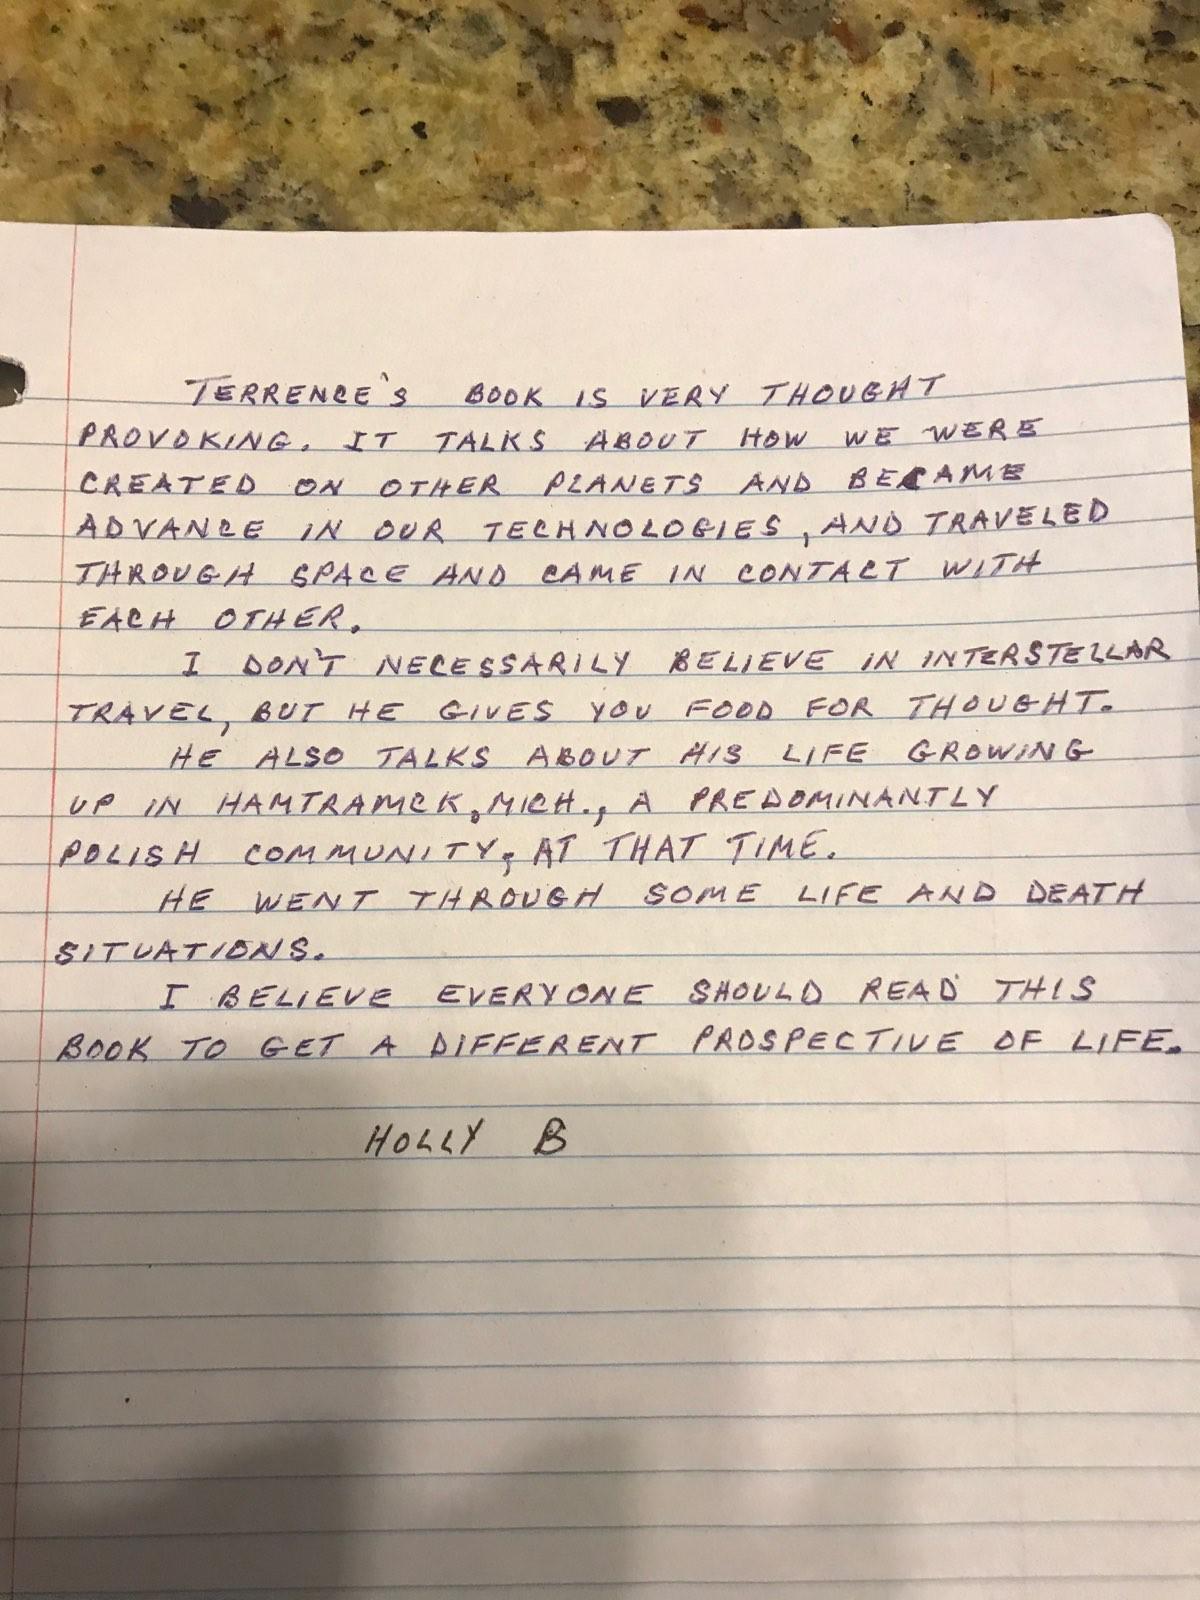 TERRENCE'S BOOK IS VERY THOUGHT
PROVOKING. IT TALKS ABOUT HOW WE WERE
CREATED ON OTHER PLANETS AND BECAME
ADVANCE IN OUR TECHNOLOGIES, AND TRAVELED
THROUGH SPACE AND CAME IN CONTACT WITH
EACH OTHER.
I DON'T NECESSARILY BELIEVE IN INTERSTELLAR
TRAVEL, BUT HE GIVES YOU FOOD FOR THOUGHT.
HE ALSO TALKS ABOUT HIS LIFE GROWING
UP IN HAMTRAMCK, MICH., A PREDOMINANTLY
POLISH COMMUNITY, AT THAT TIME.
HE WENT THROUGH SOME LIFE AND DEATH
SITUATIONS.
I BELIEVE EVERYONE SHOULD READ THIS
BOOK TO GET A DIFFERENT PROSPECTIVE OF LIFE.
HOLLY B